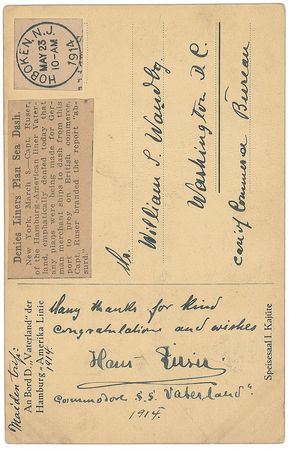 HOBOKEN, N.J.
MAY 23
10-AM
1914
Denies Liners Plan Sea Dash.
New York, March 8.—Capt. Ruser,
of the Hamburg-American liner Vater-
land, emphatically denied today that
any plans were being made for Ger-
man merchant ships to dash from this
port to prey on British commerce.
Capt. Ruser branded the report "ab-
surd."
Mr. William S.
Washington D.C.
Bureau
Maiden trip
1914.
An Bord D. „Vaterland" der
Hamburg-Amerika Linie
Many thanks for kind
congratulations and wishes
Hans Ruser
Commodore S.S. Vaterland
1914.
Speisesaal I. Kajüte